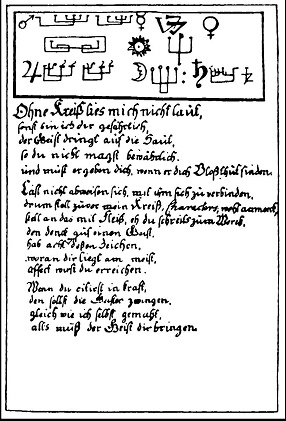 Ohne Kreiß lies mich nicht laut,
sonst bin ich dir gefährlich,
der Geist dringt auf die Haut,
so du nicht magst bewährlich.
und muß ergeben dich, wenn er dich
Laß nicht abweisen sich, mit ihm sich zu verbinden,
drum stell zuvor mein Kreiß, Characters, wohl
stell an das mit Fleiß, eh du schreibst zum Werck,
den denck auf einen Geist,
hab acht deßen Zeichen,
woran dir liegt am meist,
effect wirst du erreichen.
Wann du citiest in Kraft,
den sollst die Geister zwingen,
gleich wie ich selbst gemacht,
alls muß der Geist dir bringen.